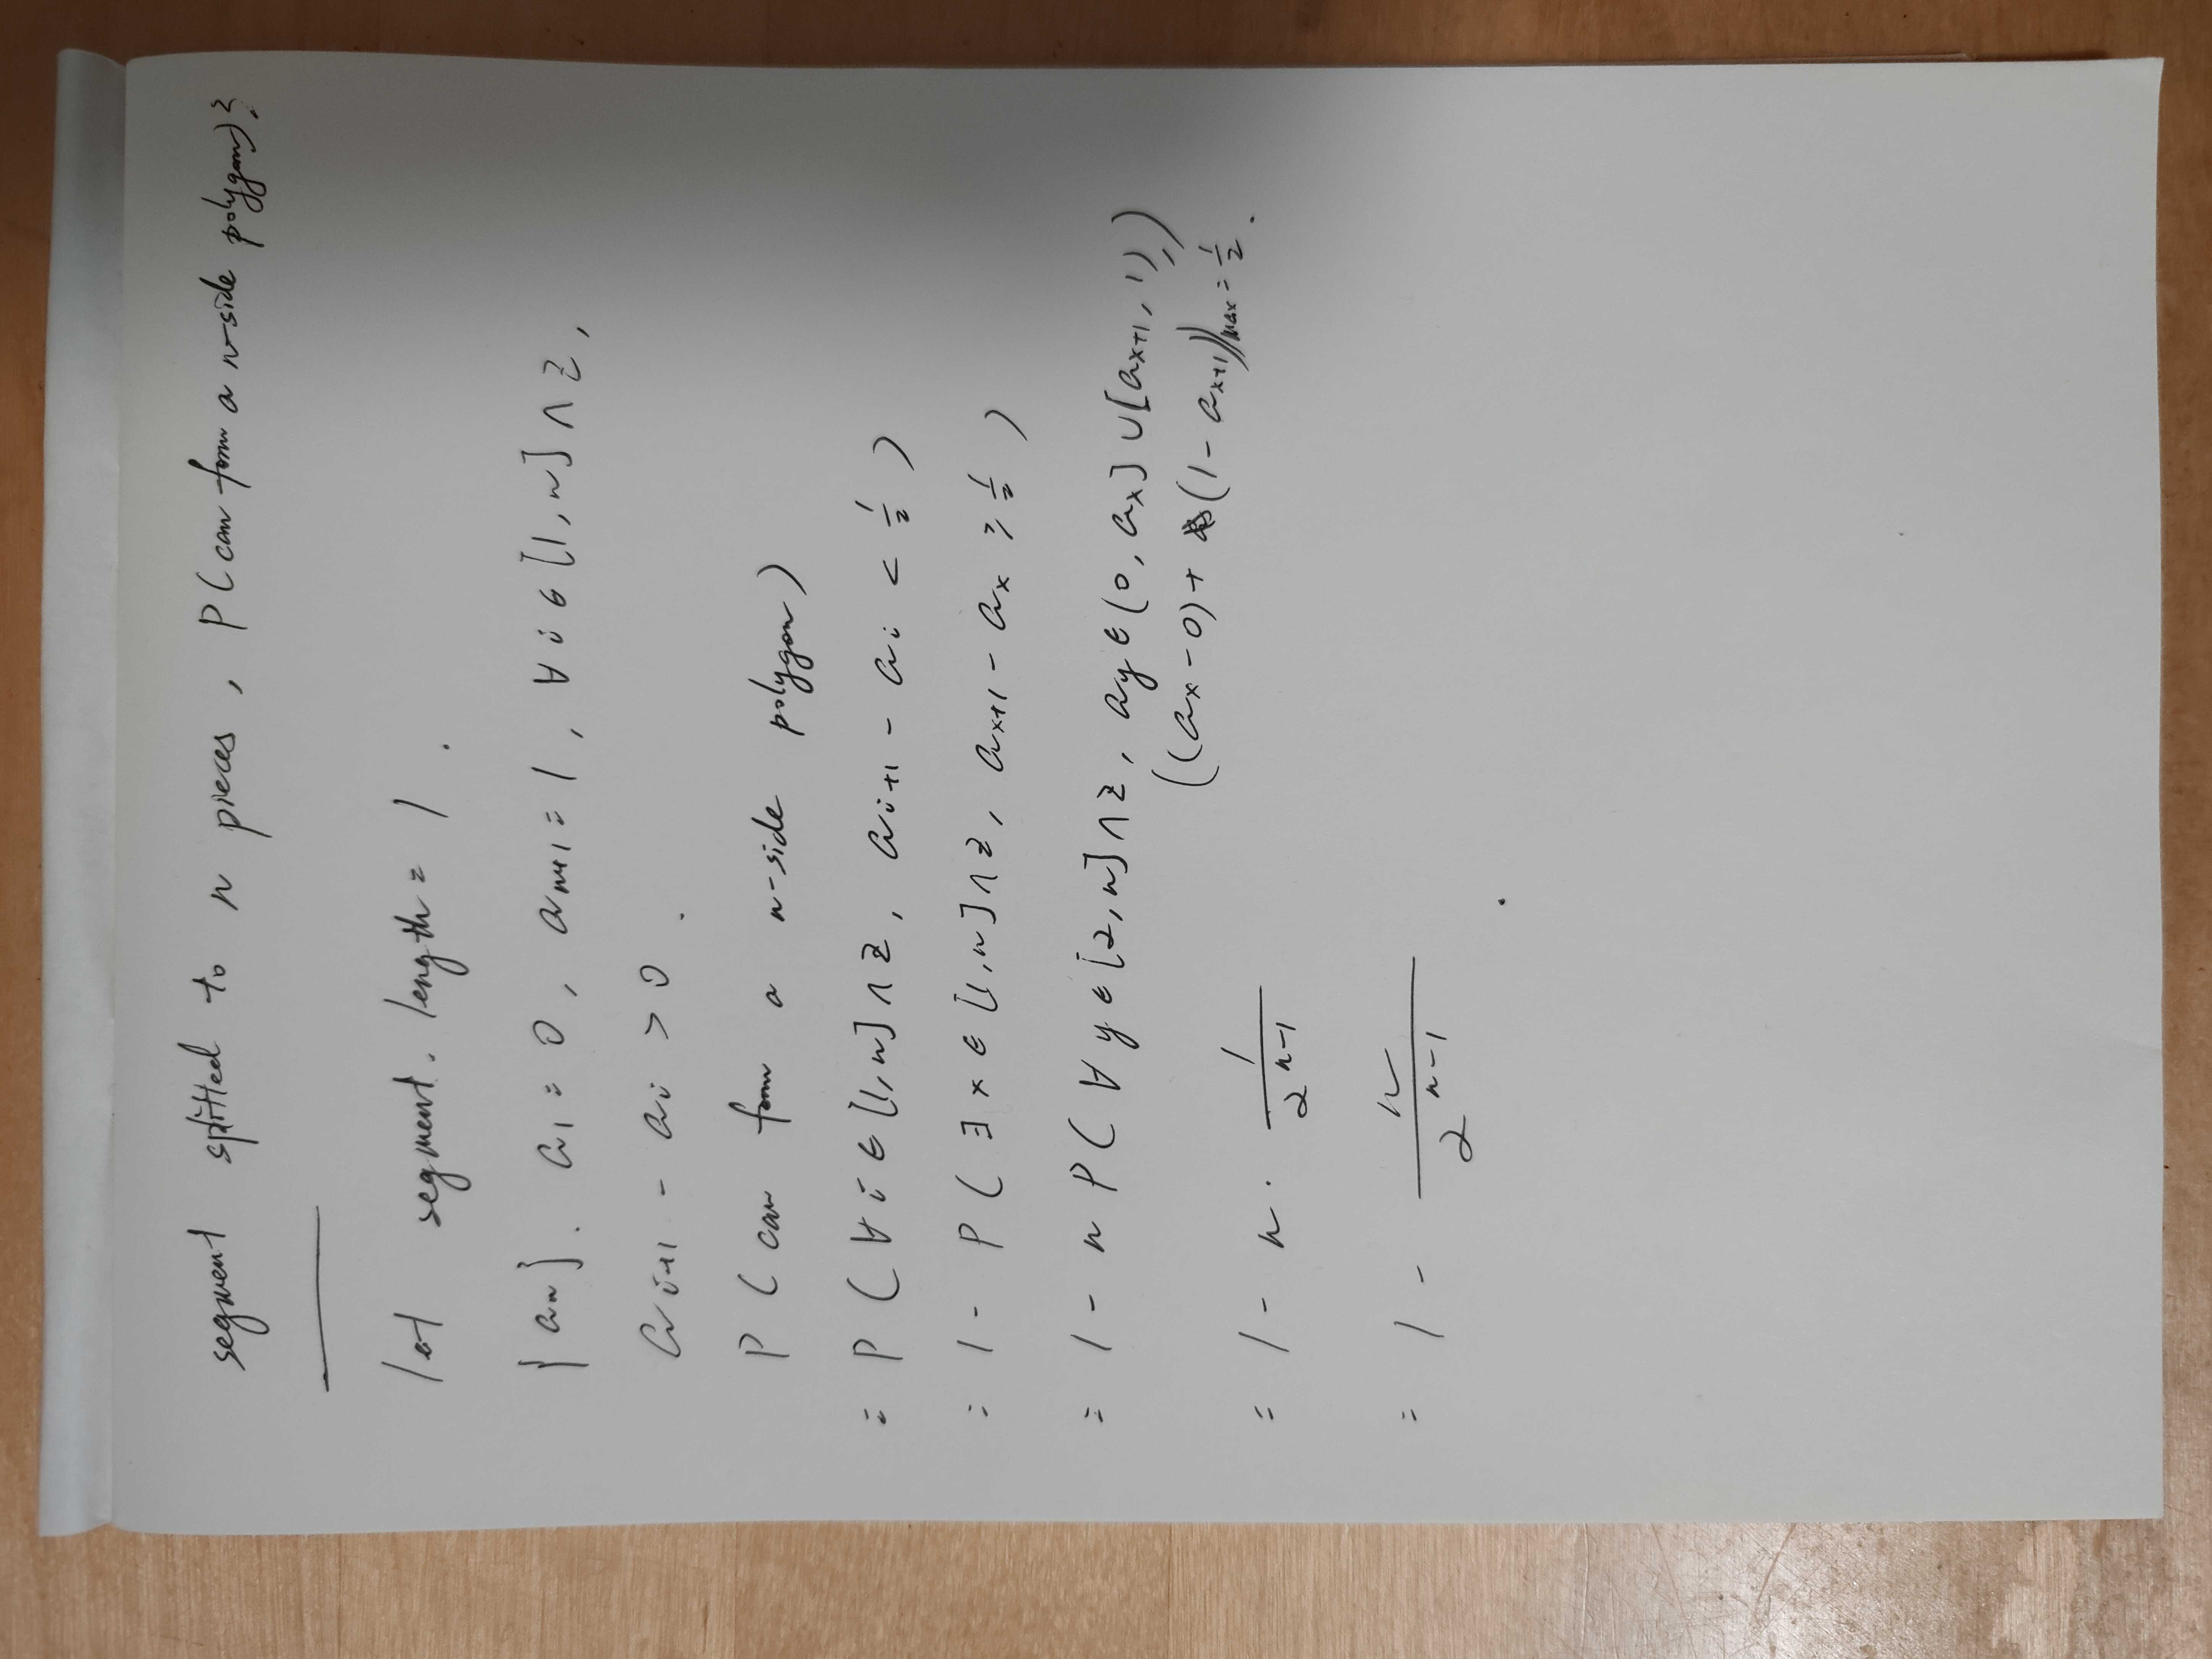 segment splitted to n pieces, P(can form a n-side polygon)?
let segment. length = 1.
{an}. a1 = 0, an+1 = 1, ∀i∈[1,n]∩Z,
ai+1 - ai > 0.
P(can form a n-side polygon)
= P(∀i∈[1,n]∩Z, ai+1 - ai < 1/2)
= 1 - P(∃x∈[1,n]∩Z, ax+1 - ax ≥ 1/2)
= 1 - nP(∀y∈[2,n]∩Z, ay∈(0, ax]∪[ax+1, 1),)
((ax - 0) + (1 - ax+1))max = 1/2.
= 1 - n · 1/2^(n-1)
= 1 - n/2^(n-1).